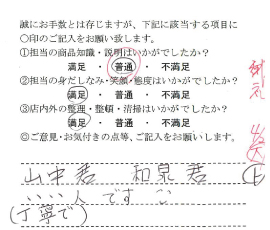 誠にお手数とは存じますが、下記に該当する項目に
〇印のご記入をお願い致します。
①担当の商品知識・説明はいかがでしたか?
満足 ・ 普通 ・ 不満足
②担当の身だしなみ・笑顔・態度はいかがでしたか?
満足 ・ 普通 ・ 不満足
③店内外の整理・整頓・清掃はいかがでしたか?
満足 ・ 普通 ・ 不満足
◎ご意見・お気付きの点等、ご記入をお願いします。
山中君 和泉君
いい人です
(丁寧で)